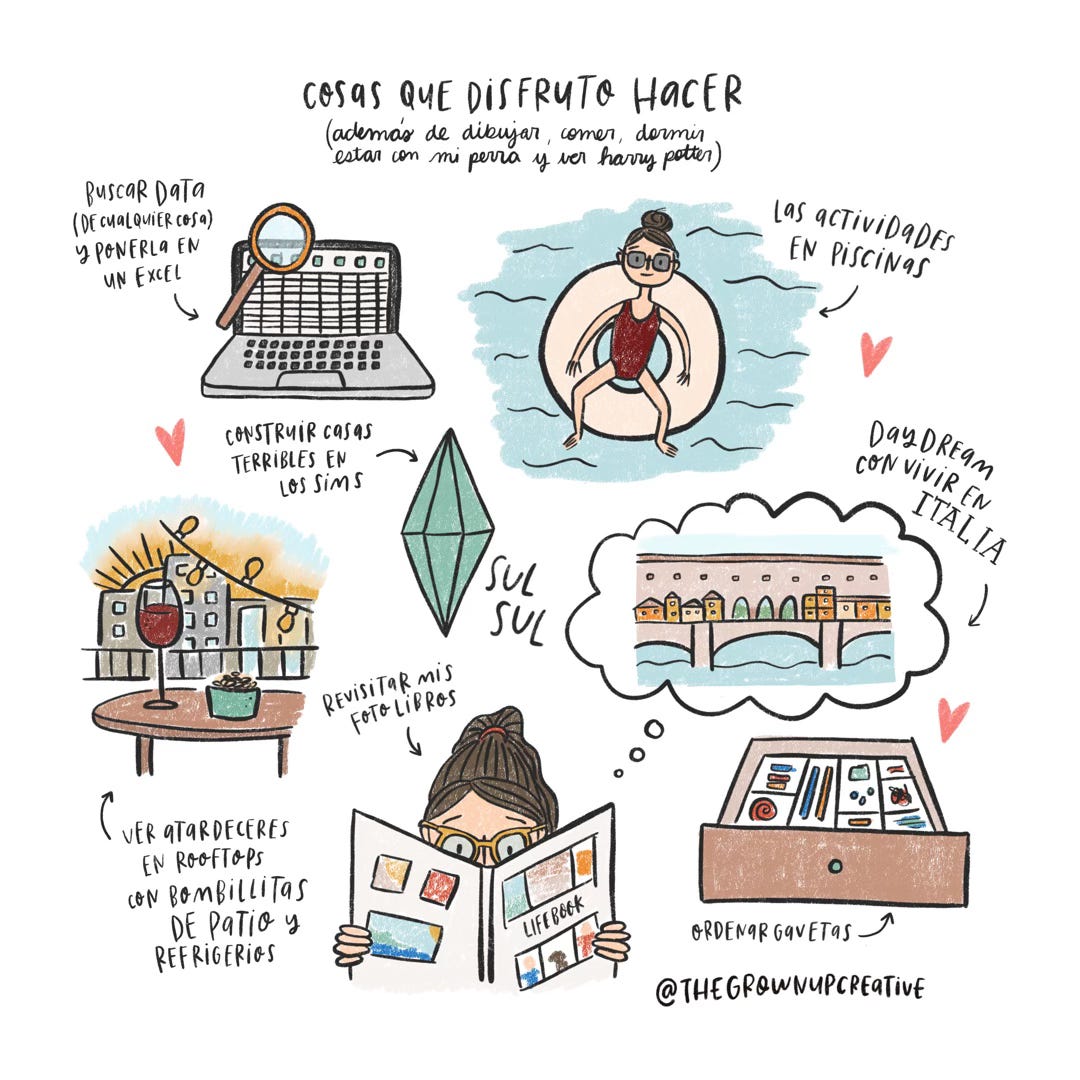 COSAS QUE DISFRUTO HACER
(además de dibujar, comer, dormir
estar con mi perra y ver harry potter)
BUSCAR DATA
(DE CUALQUIER COSA)
Y PONERLA EN
UN EXCEL
LAS ACTIVIDADES
EN PISCINAS
CONSTRUIR CASAS
TERRIBLES EN
LOS SIMS
SUL
SUL
DAYDREAM
CON VIVIR EN
ITALIA
REVISITAR MIS
FOTO LIBROS
LIFEBOOK
VER ATARDECERES
EN ROOFTOPS
CON BOMBILLITAS
DE PATIO Y
REFRIGERIOS
ORDENAR GAVETAS
@THEGROWNUPCREATIVE